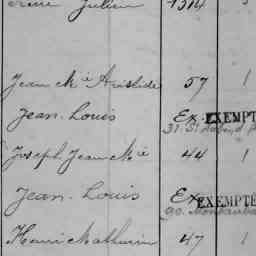 Julien 1314
Jean Mie Aristide 57 1
Jean-Louis Ex EXEMPT
31. St
Joseph Jean Mie 44 1
Jean-Louis Ex EXEMPTÉ
90. Montauba
Henri Mathurin 47 1